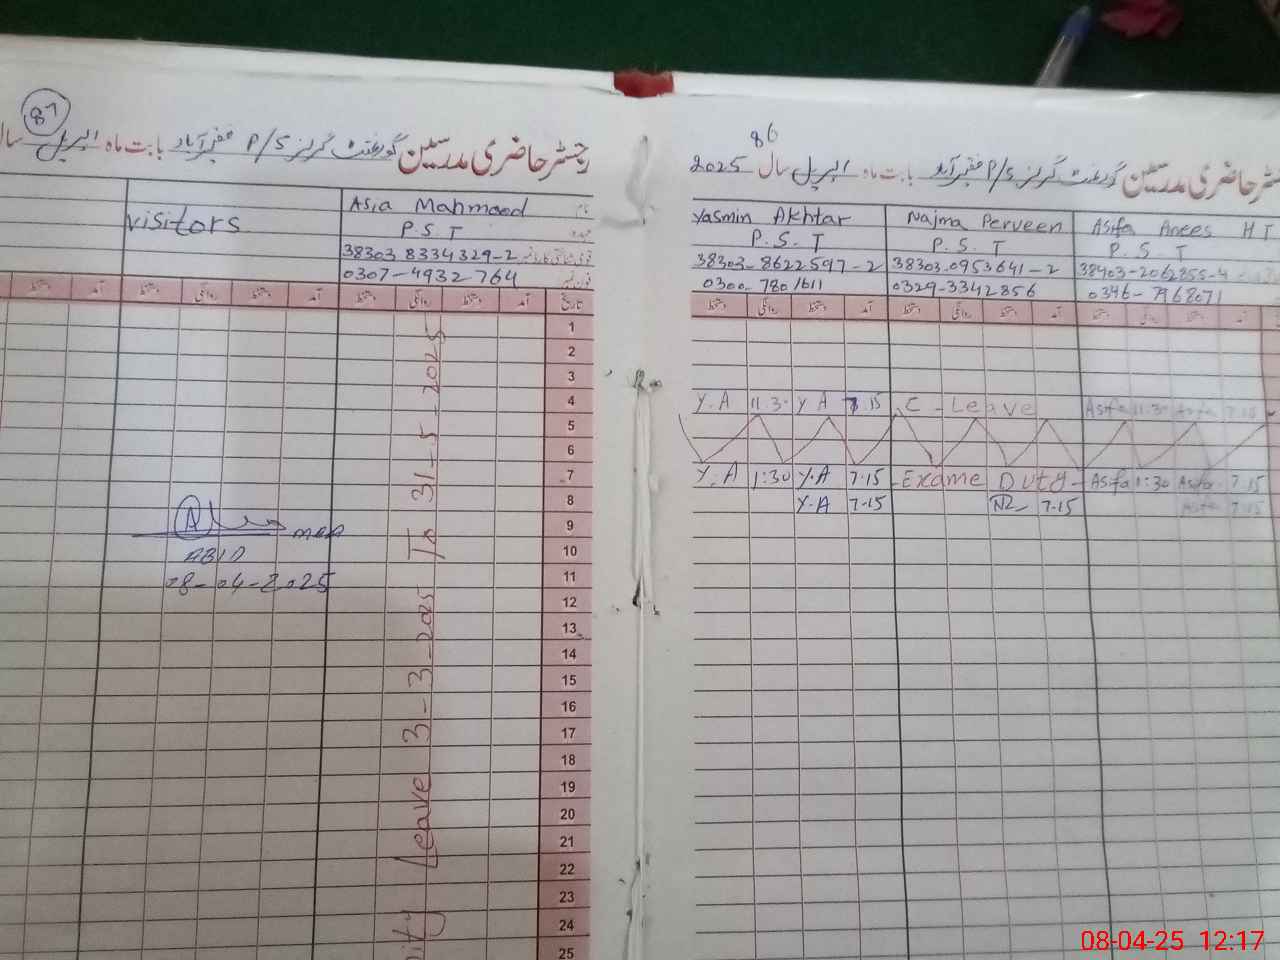 87
رجسٹر حاضری مدرسین گورنمنٹ گرلز P/S بابت ماہ اپریل سال
visitors
Asia Mahmood
P.S.T
38303 8334329-2
0307-4932764
آمد دستخط روانگی دستخط آمد دستخط روانگی دستخط تاریخ
1
2
3
4
5
6
7
8
9
10
11
12
13
14
15
16
17
18
19
20
21
22
23
24
25
Leave 3-3-2025 To 31-5-2025
A
MEA
ABID
08-04-2025
86
رجسٹر حاضری مدرسین گورنمنٹ گرلز P/S بابت ماہ اپریل سال 2025
Yasmin Akhtar
P.S.T
38303-8622597-2
0300-7801611
Najma Perveen
P.S.T
38303-0953641-2
0329-3342856
Asifa Anees HT
P.S.T
38403-2062855-4
0346-7968071
آمد دستخط روانگی دستخط آمد دستخط روانگی دستخط آمد دستخط روانگی دستخط
Y.A 11.30 Y A 7.15 C-Leave Asifa 11:30 Asifa 7.15
Y.A 1:30 Y.A 7.15 -Exame Duty- Asifa 1:30 Asifa 7.15
Y.A 7.15 7.15 Asifa 7.15
08-04-25 12:17